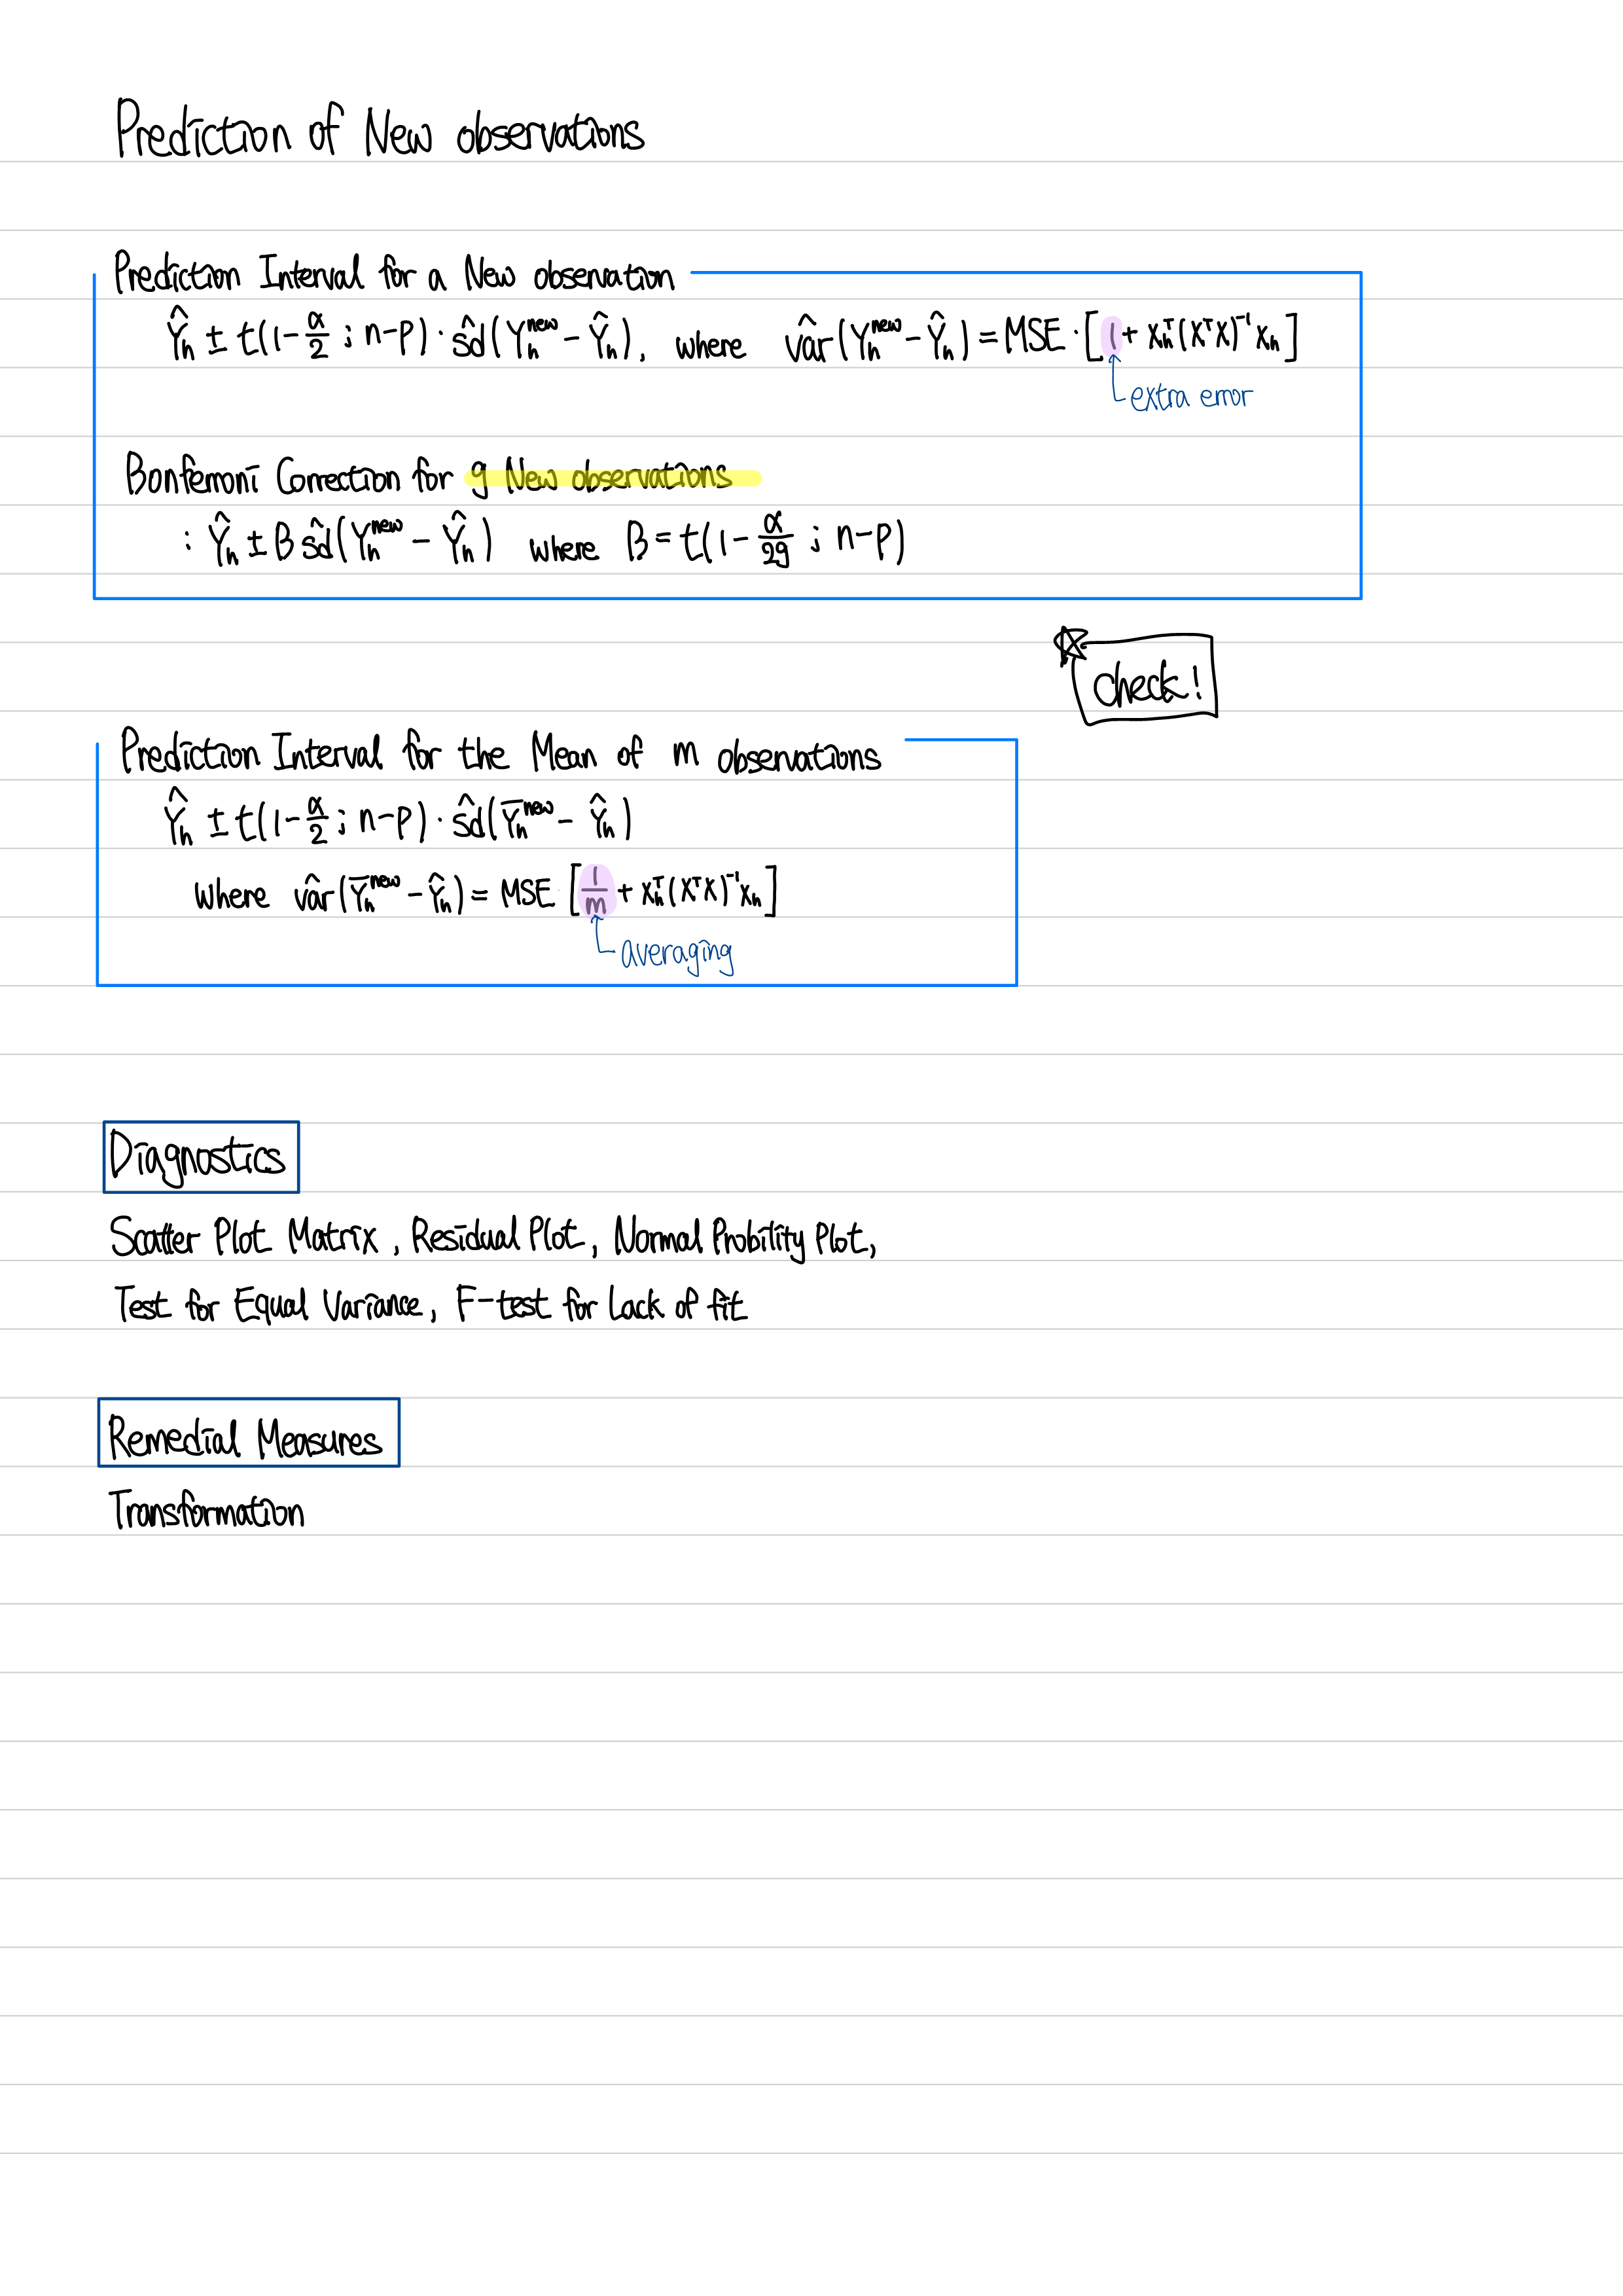 Prediction of New observations
Prediction Interval for a New observation
Ŷₕ ± t(1 − α/2 ; n−p) · ŝd(Yₕⁿᵉʷ − Ŷₕ), where v̂ar(Yₕⁿᵉʷ − Ŷₕ) = MSE · [1 + xₕᵀ(XᵀX)⁻¹xₕ]
extra error
Bonferroni Correction for g New observations
: Ŷₕ ± B ŝd(Yₕⁿᵉʷ − Ŷₕ) where B = t(1 − α/2g ; n−p)
check!
Prediction Interval for the Mean of m observations
Ŷₕ ± t(1 − α/2 ; n−p) · ŝd(Ȳₕⁿᵉʷ − Ŷₕ)
where v̂ar(Ȳₕⁿᵉʷ − Ŷₕ) = MSE [1/m + xₕᵀ(XᵀX)⁻¹xₕ]
averaging
Diagnostics
Scatter Plot Matrix, Residual Plot, Normal Probility Plot,
Test for Equal Variance, F-test for Lack of fit
Remedial Measures
Transformation